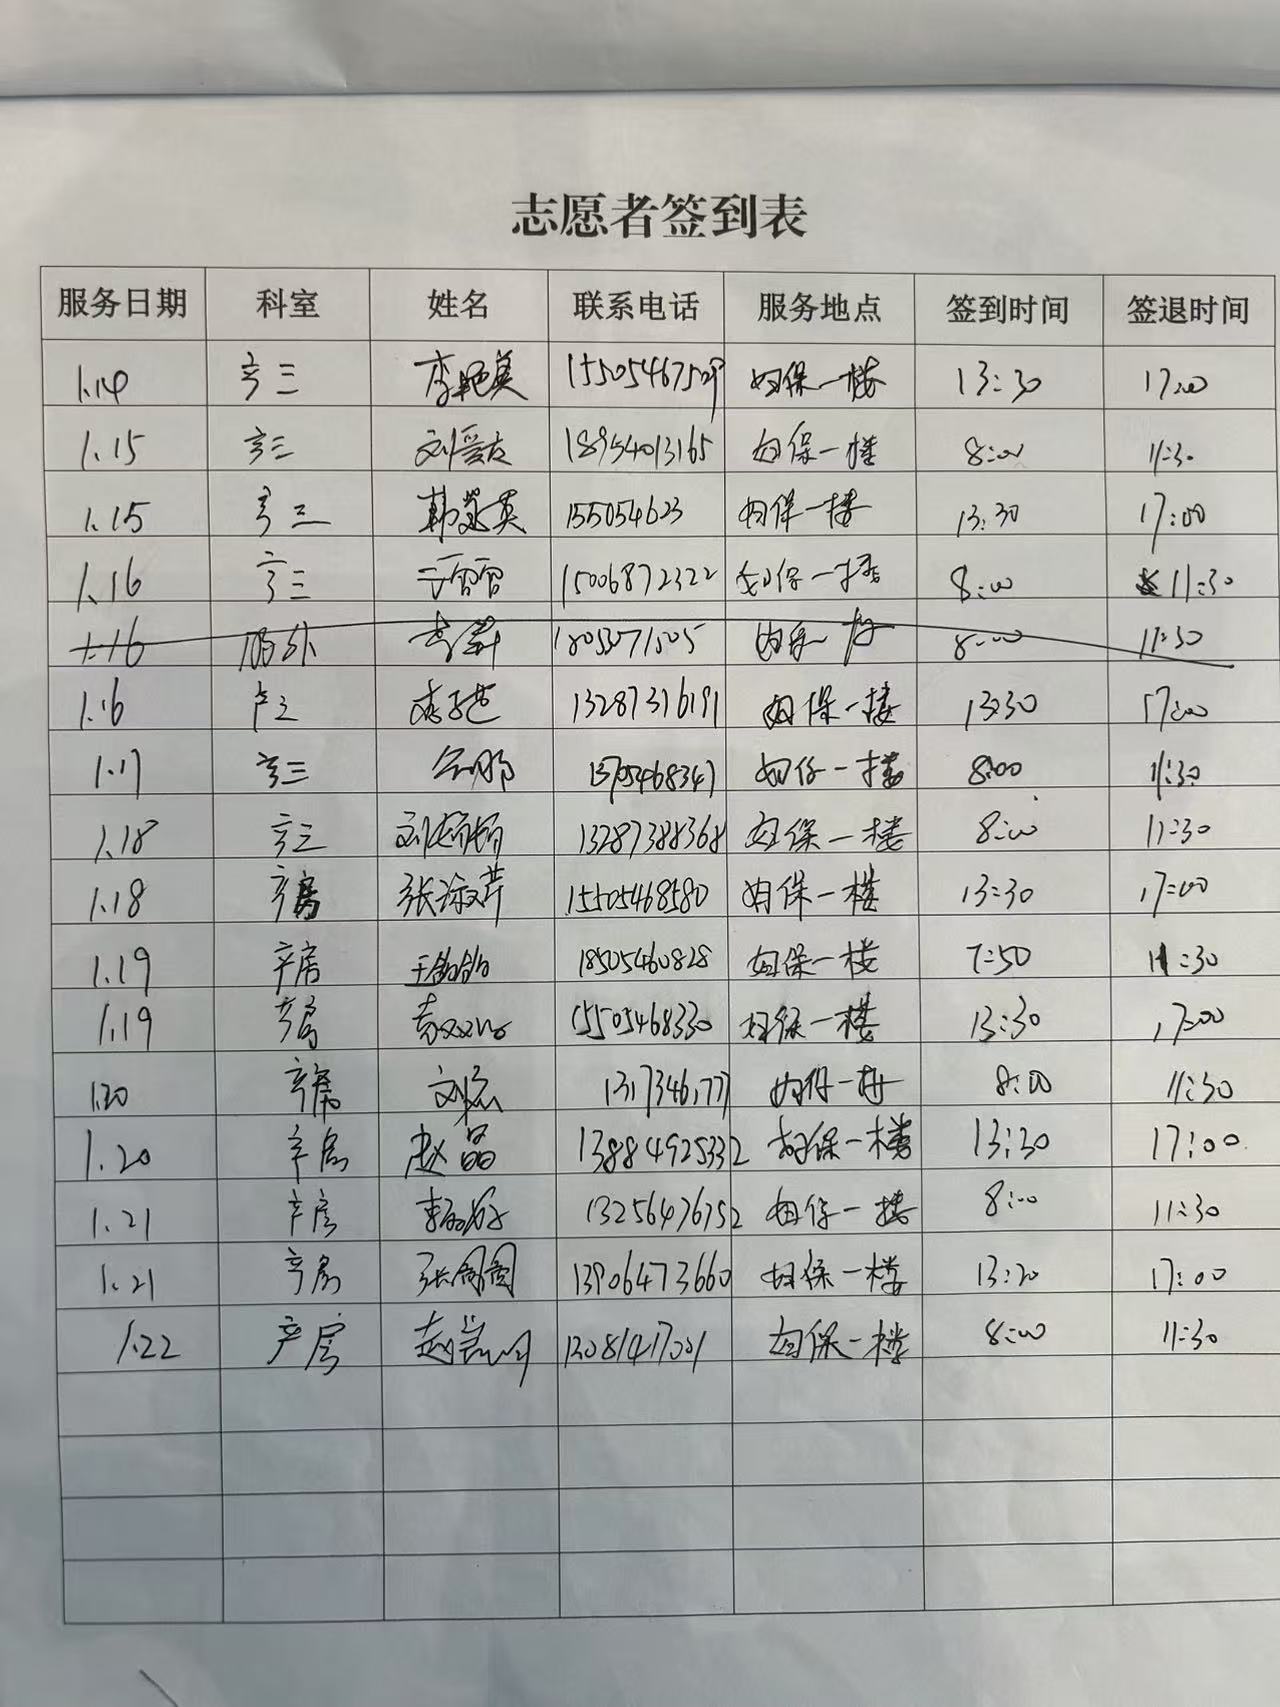 志愿者签到表
服务日期 科室 姓名 联系电话 服务地点 签到时间 签退时间
1.14 产三 李艳美 妇保一楼 13:30 17:00
1.15 产三 刘爱友 18954013165 妇保一楼 8:00 11:30
1.15 产三 韩 英 155054623 妇保一楼 13:30 17:00
1.16 产三 15006872322 妇保一楼 8:00 11:30
1.16 8:00 11:30
1.16 产三 13287316191 妇保一楼 13:30 17:00
1.17 产三 13705468347 妇保一楼 8:00 11:30
1.18 产三 13287388368 妇保一楼 8:00 11:30
1.18 产房 15505468580 妇保一楼 13:30 17:00
1.19 产房 18505460828 妇保一楼 7:50 11:30
1.19 产房 15505468330 妇保一楼 13:30 17:00
1.20 产房 妇保一楼 8:00 11:30
1.20 产房 赵晶 13884925332 妇保一楼 13:30 17:00
1.21 产房 13256476752 妇保一楼 8:00 11:30
1.21 产房 张圆圆 13906473660 妇保一楼 13:20 17:00
1.22 产房 妇保一楼 8:00 11:30